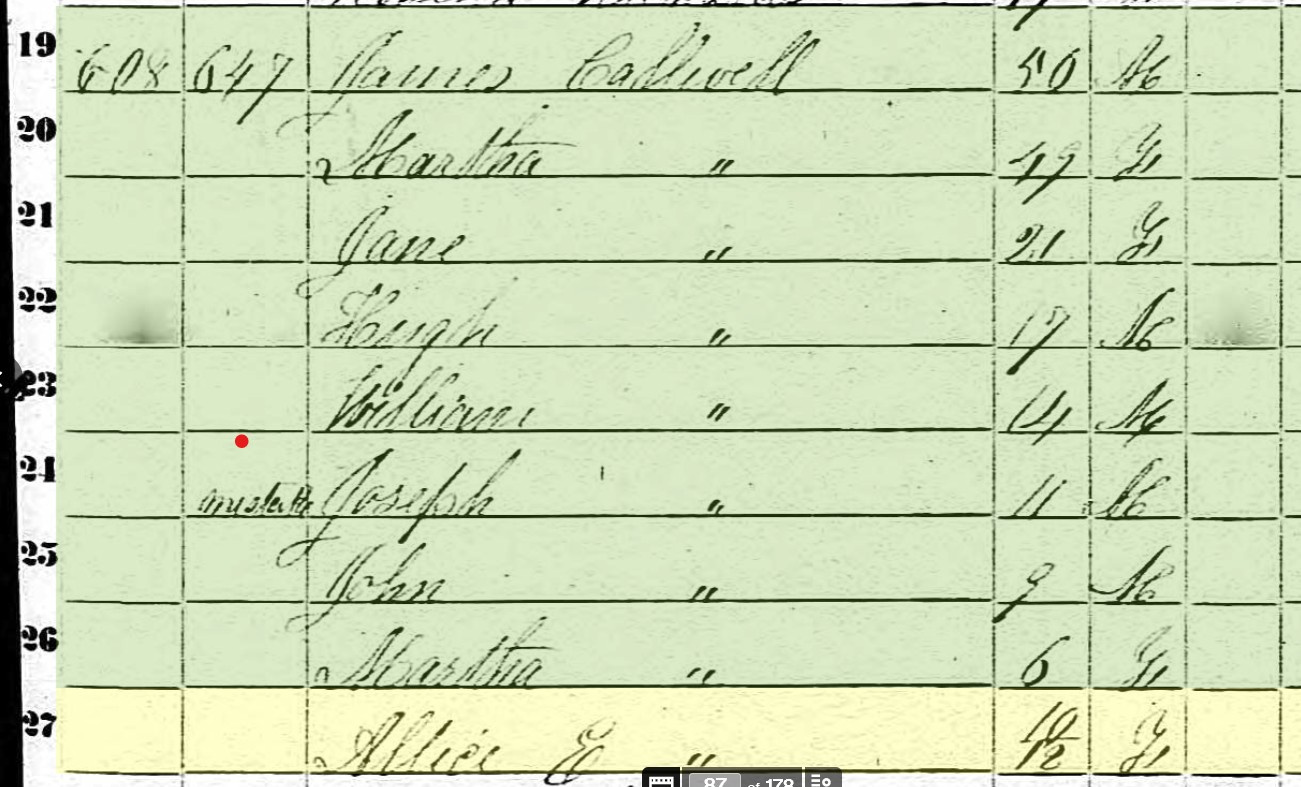 19 608 647 James Calldwell 50 M
20 Martha " 49 F
21 Jane " 21 F
22 Hugh " 17 M
23 William " 14 M
24 Joseph " 11 M
25 John " 9 M
26 Martha " 6 F
27 Allice E " 10/12 F
87 of 178